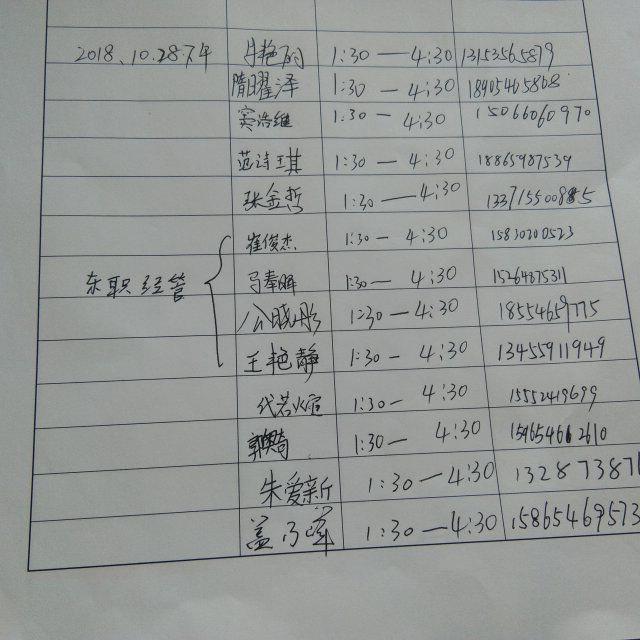 2018.10.28下午 牛艳丽 1:30—4:30 13153565879
隋曜泽 1:30—4:30 18905465868
宾浩维 1:30—4:30 15066060970
范诗琪 1:30—4:30 18865987539
张金哲 1:30—4:30 13371550085
崔俊杰 1:30—4:30 15830200523
东职经管 马奉晖 1:30—4:30 15264875311
公晓彤 1:30—4:30 18554659775
王艳静 1:30—4:30 13455911949
代若煊 1:30—4:30 15552419699
1:30—4:30
朱爱新 1:30—4:30 132873871
盖乃峰 1:30—4:30 15865469573